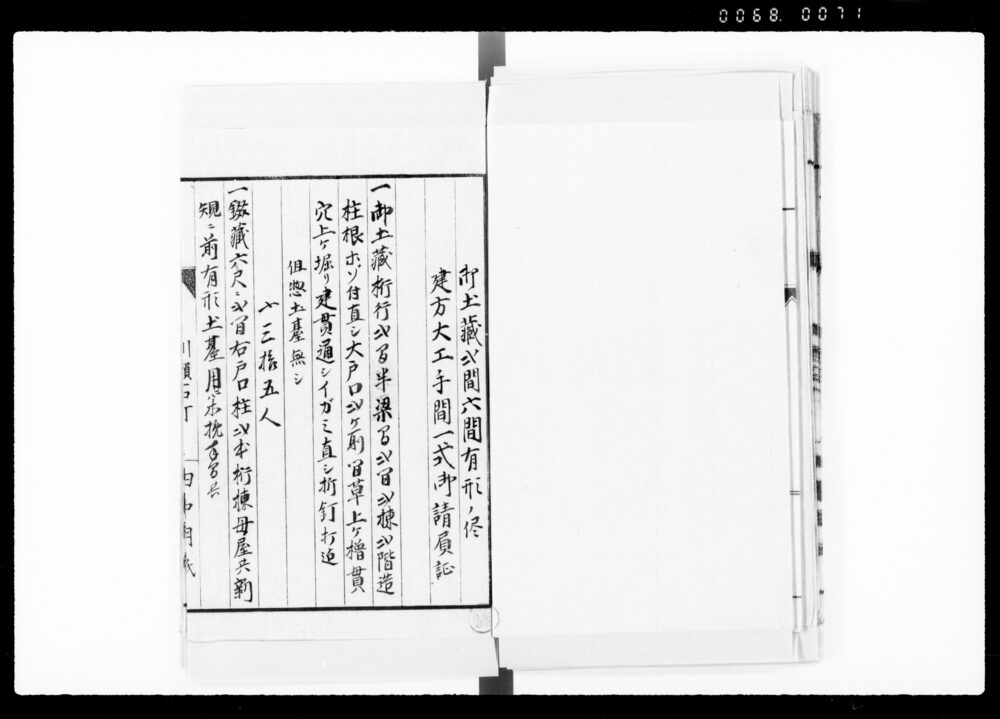 0068.0071
御土藏弐間六間有形ノ侭
建方大工手間一式御請負証
一御土藏桁行弐間半梁間弐間弐棟弐階造
柱根ホソ付直シ大戸口弐ケ所間草上ケ檜貫
穴上ケ堀リ建貫通シイガミ直シ折釘打迠
但惣土臺無シ
〆三拾五人
一鎹藏六尺ニ弐間右戸口柱弐本桁棟母屋共新
規ニ前有形土臺用ニ木挽手間共
川瀬石丁